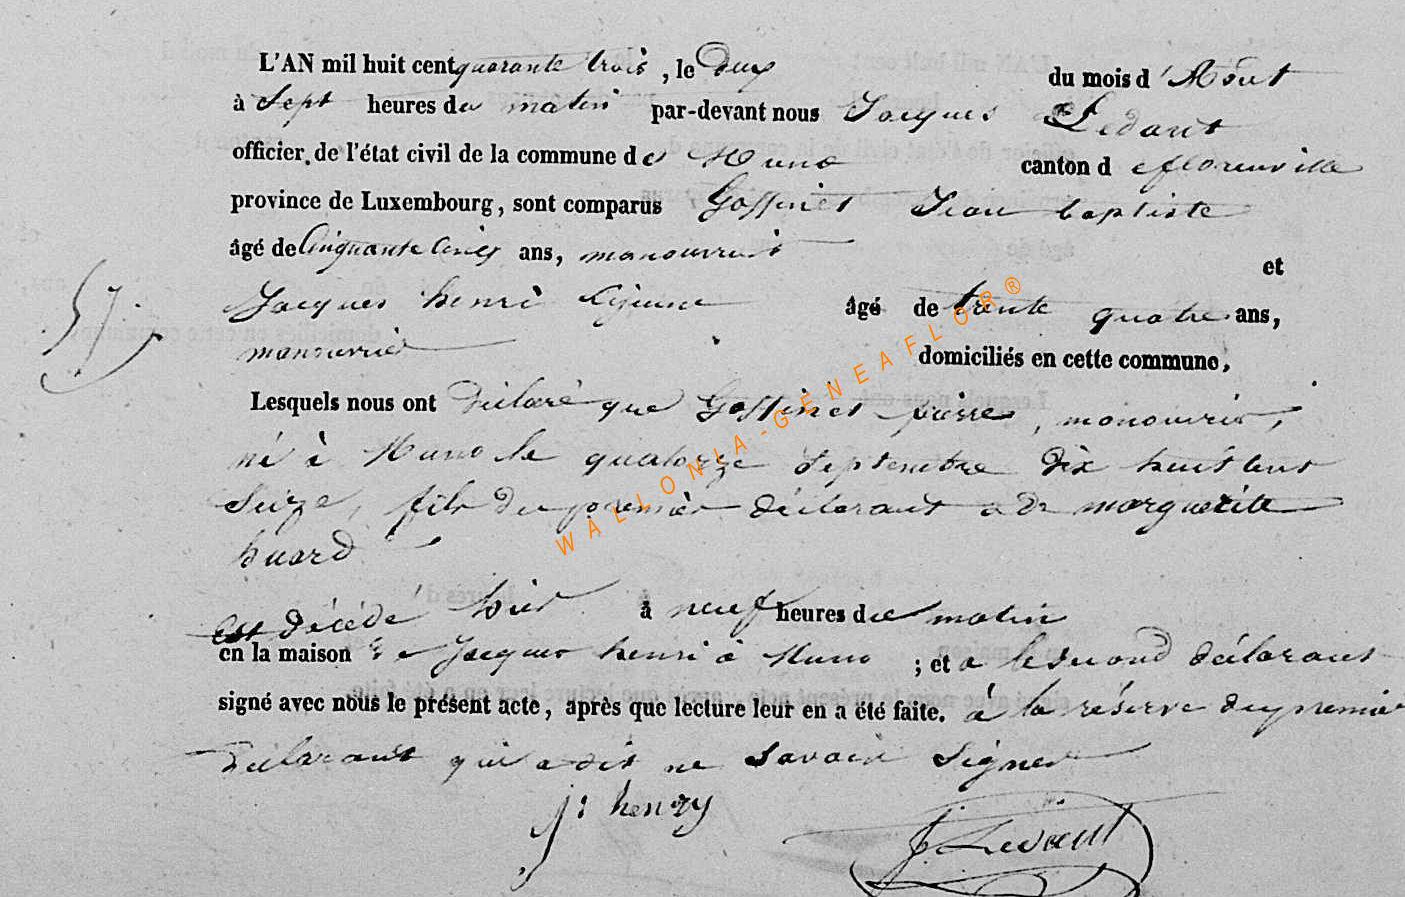 L'AN mil huit cent quarante trois, le deux du mois d'Août
à Sept heures du matin par-devant nous Jacques Ledant
officier de l'état civil de la commune de Muno canton de florenville
province de Luxembourg, sont comparus Goffinet Jean baptiste
âgé de Cinquante ans, manouvrier et
Jacques henri Lejeune âgé de trente quatre ans,
manouvrier domiciliés en cette commune,
57.
Lesquels nous ont déclaré que Goffinet pierre, manouvrier,
né à Muno le quatorze Septembre dix huit cent
Seize, fils du premier déclarant et de marguerite
huard
Est décédé hier à neuf heures du matin
en la maison de Jacques henri à Muno ; et a le second déclarant
signé avec nous le présent acte, après que lecture leur en a été faite. à la réserve du premier
déclarant qui a dit ne Savoir Signer
J: henry
J Ledant
WALLONIA-GENEAFLOR®